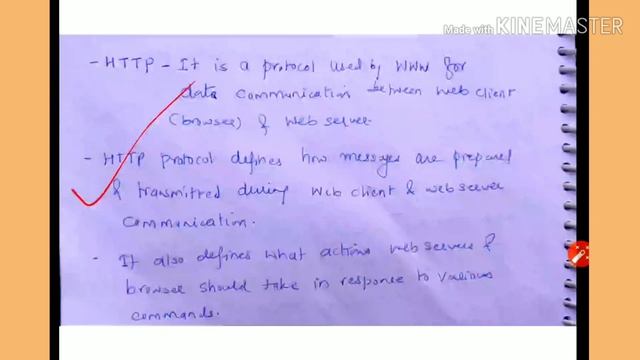 Made with KINEMASTER
- HTTP - It is a protocol used by WWW for
data communication between web client
(browser) & web server.
- HTTP protocol defines how messages are prepared
& transmitted during web client & web server
communication.
- It also defines what actions web servers &
browser should take in response to various
commands.